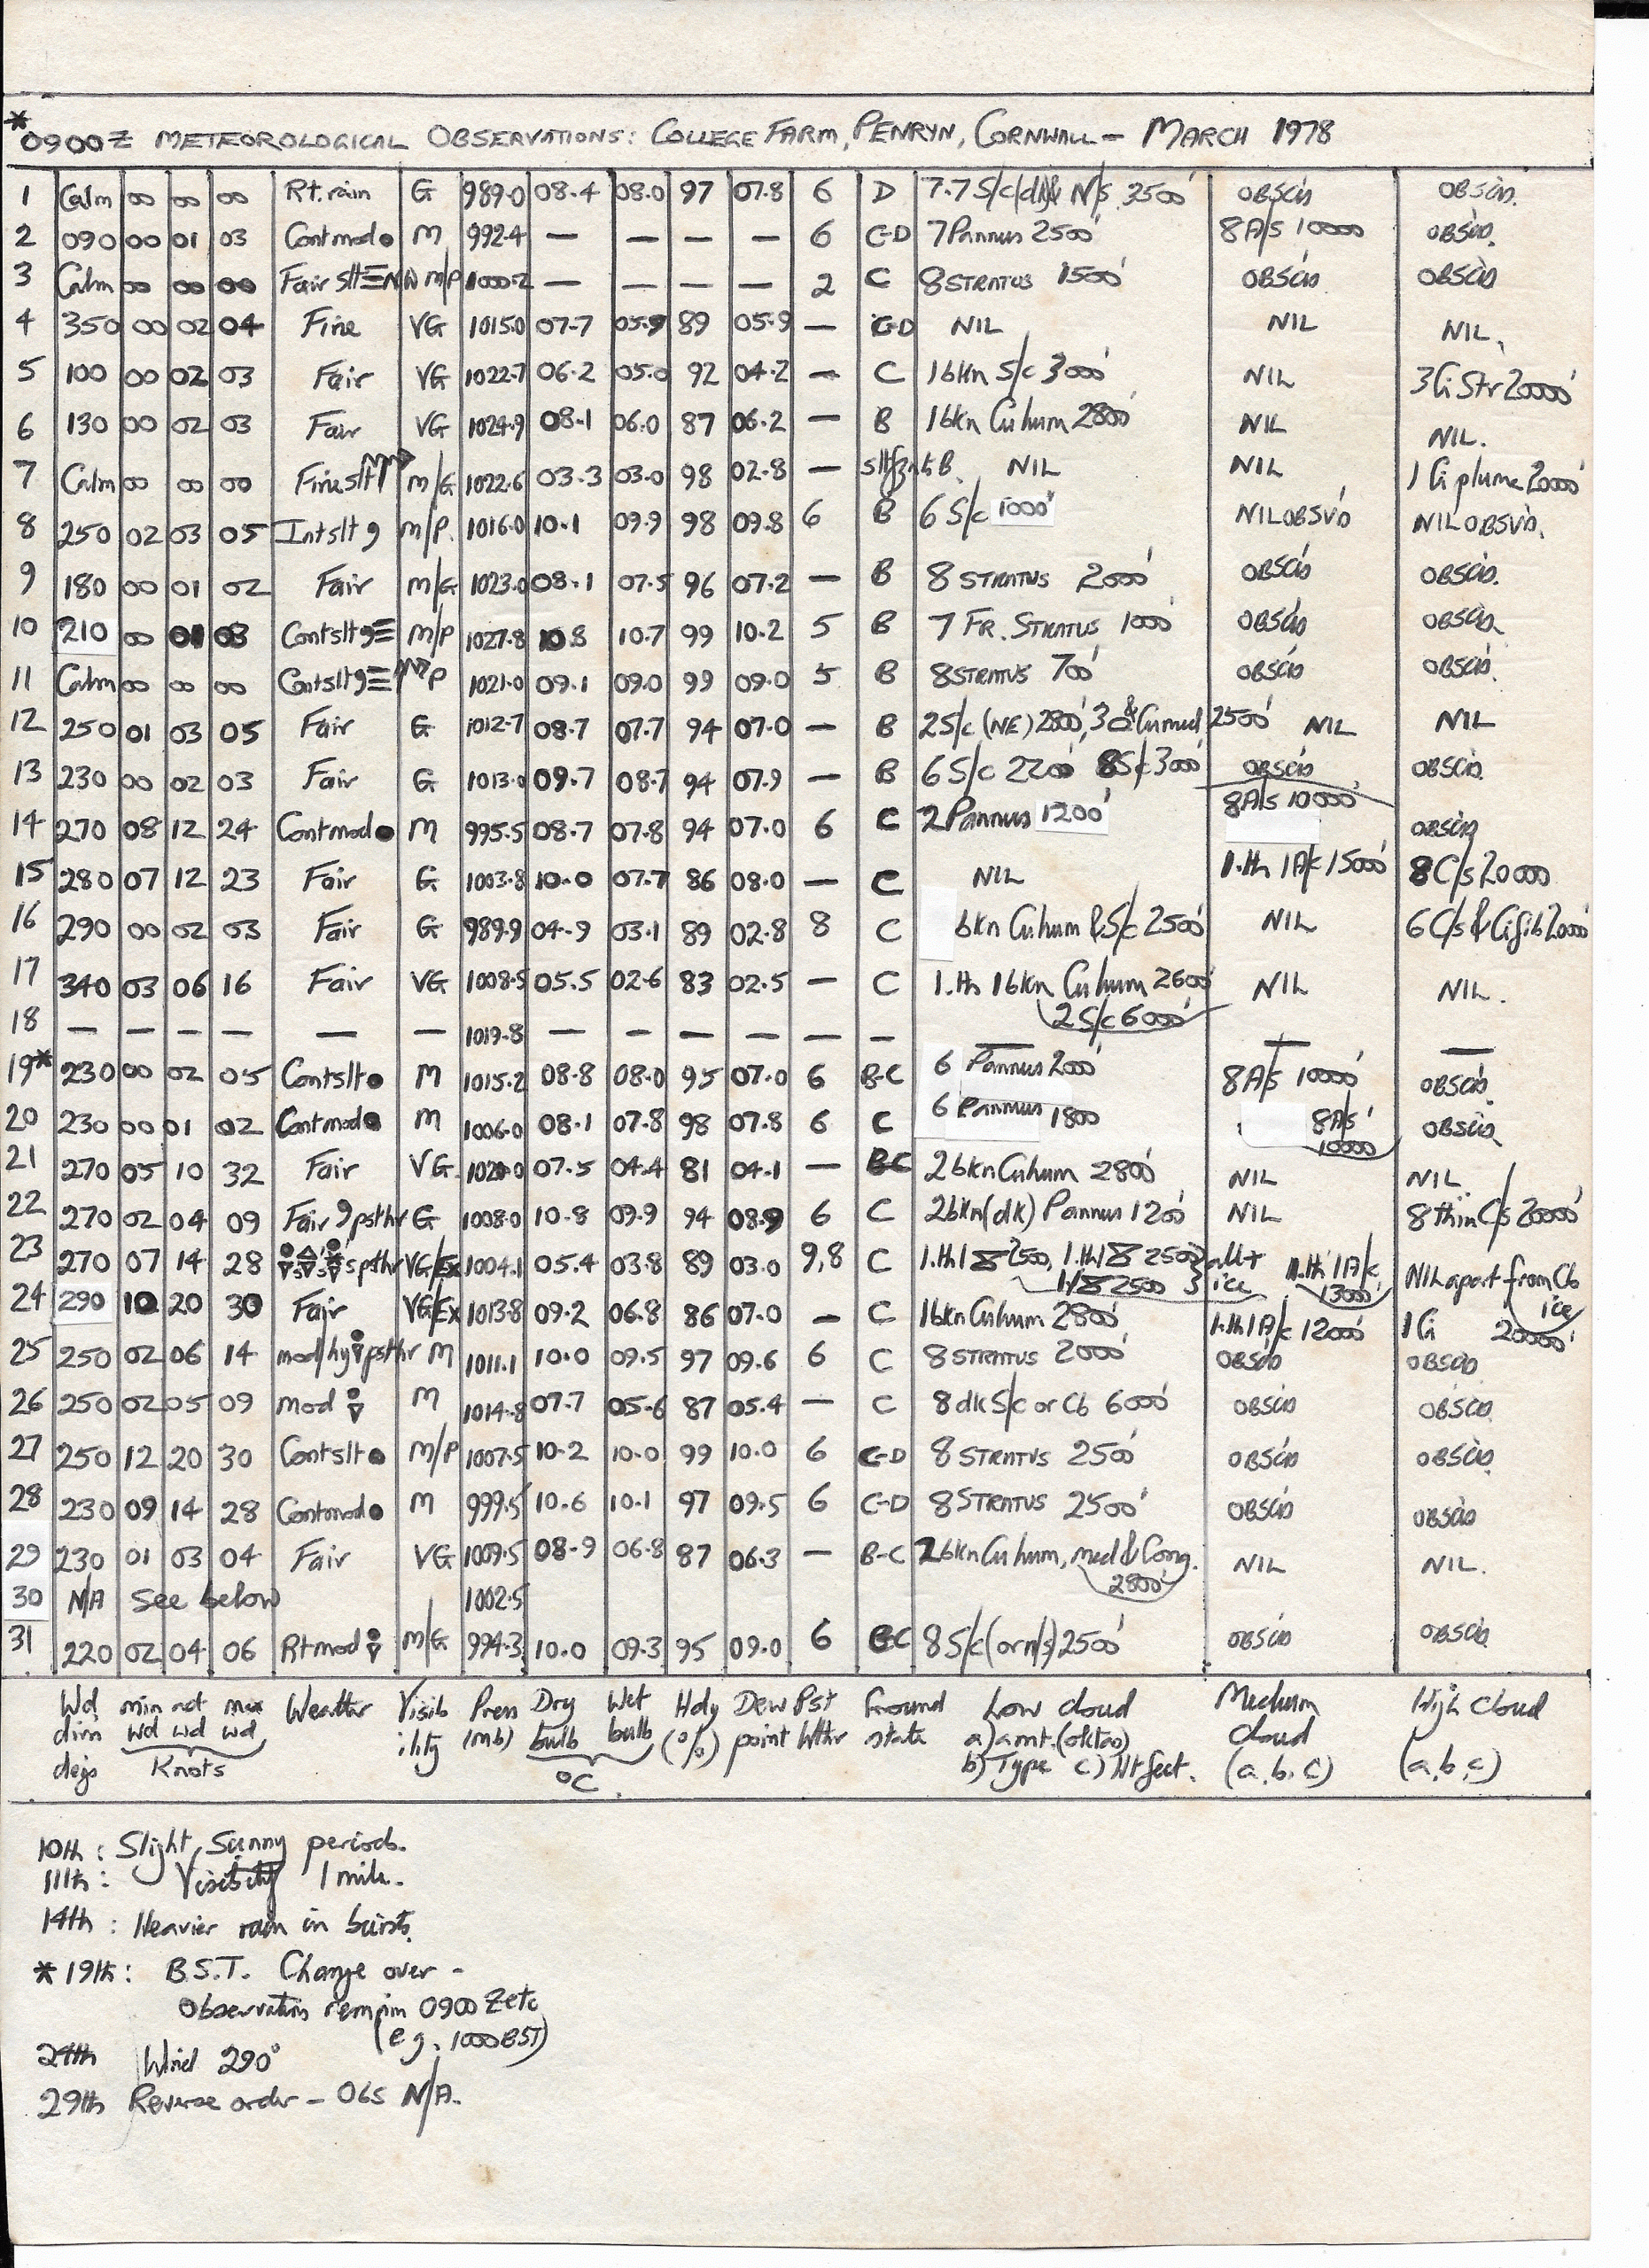 *0900Z METEOROLOGICAL OBSERVATIONS: COLLEGE FARM, PENRYN, CORNWALL – MARCH 1978
1 Calm 00 00 00 Rt. rain G 989.0 08.4 08.0 97 07.8 6 D 7.7 S/c/dk& N/s 3500' OBSC'D OBSC'D.
2 090 00 01 03 Contmod● M 992.4 — — — — 6 C-D 7 Pannus 2500' 8A/s 10000 OBSC'D.
3 Calm 00 00 00 Fair slt≡ M/P 1000.2 — — — — 2 C 8 STRATUS 1500' OBSC'D OBSC'D
4 350 00 02 04 Fine VG 1015.0 07.7 05.9 89 05.9 — C-D NIL NIL NIL.
5 100 00 02 03 Fair VG 1022.7 06.2 05.0 92 04.2 — C 1bkn S/c 3000' NIL 3 Ci Str 20000'
6 130 00 02 03 Fair VG 1024.9 08.1 06.0 87 06.2 — B 1bkn Cu hum 2800' NIL NIL.
7 Calm 00 00 00 Fine slt M/G 1022.6 03.3 03.0 98 02.8 — B. NIL NIL 1 Ci plume 20000'
8 250 02 03 05 Intslt 9 M/P. 1016.0 10.1 09.9 98 09.8 6 B 6 S/c 1000' NIL OBSV'D NIL OBSV'D.
9 180 00 01 02 Fair M/G 1023.0 08.1 07.5 96 07.2 — B 8 STRATUS 2000' OBSC'D OBSC'D.
10 210 00 01 03 Contslt 9≡ M/P 1027.8 10.8 10.7 99 10.2 5 B 7 FR. STRATUS 1000' OBSC'D OBSC'D
11 Calm 00 00 00 Contslt 9≡ P 1021.0 09.1 09.0 99 09.0 5 B 8 STRATUS 700' OBSC'D OBSC'D.
12 250 01 03 05 Fair G 1012.7 08.7 07.7 94 07.0 — B 2S/c (NE) 2800', 3 & Cu med 2500' NIL NIL
13 230 00 02 03 Fair G 1013.0 09.7 08.7 94 07.9 — B 6 S/c 2200 8S/c 3000' OBSC'D OBSC'D.
14 270 08 12 24 Contmod● M 995.5 08.7 07.8 94 07.0 6 C 2 Pannus 1200' 8A/s 10000' OBSC'D
15 280 07 12 23 Fair G 1003.8 10.0 07.7 86 08.0 — C NIL 1.th 1A/c 15000' 8 C/s 20000
16 290 00 02 03 Fair G 989.9 04.9 03.1 89 02.8 8 C bkn Cu hum & S/c 2500' NIL 6 C/s & Ci fib 20000'
17 340 03 06 16 Fair VG 1008.5 05.5 02.6 83 02.5 — C 1.th 1bkn Cu hum 2600' NIL NIL.
2 S/c 6000'
18 — — — — — — 1019.8 — — — — — — — — —
19* 230 00 02 05 Contslt● M 1015.2 08.8 08.0 95 07.0 6 B-C 6 Pannus 2000' 8A/s 10000' OBSC'D.
20 230 00 01 02 Contmod● M 1006.0 08.1 07.8 98 07.8 6 C 6 Pannus 1800 8A/s' 10000 OBSC'D
21 270 05 10 32 Fair VG 1020.0 07.5 04.4 81 04.1 — B-C 2 bkn Cu hum 2800' NIL NIL
22 270 02 04 09 Fair 9 psthr G 1008.0 10.8 09.9 94 08.9 6 C 2bkn(dk) Pannus 1200' NIL 8 thin C/s 20000'
23 270 07 14 28 s pthr VG/Ex 1004.1 05.4 03.8 89 03.0 9,8 C 1.th 1 2500, 1.th 1 2500 all+ 1.th 1A/c NIL apart from Cb
2500 ice 13000' ice
24 290 10 20 30 Fair VG/Ex 1013.8 09.2 06.8 86 07.0 — C 1bkn Cu hum 2800' 1.th 1A/c 12000' 1 Ci 20000'
25 250 02 06 14 mod/hy psthr M 1011.1 10.0 09.5 97 09.6 6 C 8 STRATUS 2000' OBSC'D OBSC'D
26 250 02 05 09 mod M 1014.8 07.7 05.6 87 05.4 — C 8 dk S/c or Cb 6000' OBSC'D OBSC'D
27 250 12 20 30 Contslt● M/P 1007.5 10.2 10.0 99 10.0 6 C-D 8 STRATUS 2500' OBSC'D OBSC'D
28 230 09 14 28 Contmod● M 999.5 10.6 10.1 97 09.5 6 C-D 8 STRATUS 2500' OBSC'D OBSC'D
29 230 01 03 04 Fair VG 1009.5 08.9 06.8 87 06.3 — B-C 2 bkn Cu hum, med & Cong. 2800' NIL NIL.
30 N/A See below 1002.5
31 220 02 04 06 Rt mod M/G 994.3 10.0 09.3 95 09.0 6 B-C 8 S/c (or n/s) 2500' OBSC'D OBSC'D
Wd min max Weather Visib Press Dry Wet Hdy Dew Pst Ground Low cloud Medium High Cloud
dirn wd wd wd ility (mb) bulb bulb (%) point Wthr state a) amt. (oktas) cloud
degs Knots °C b) Type c) Ht feet. (a, b, c) (a, b, c)
10th : Slight, Sunny periods.
11th : Visibility 1 mile.
14th : Heavier rain in bursts.
*19th : B.S.T. Change over –
Observations remain 0900 Z etc
(eg. 1000 BST)
24th Wind 290°
29th Reverse order – 06s N/A.